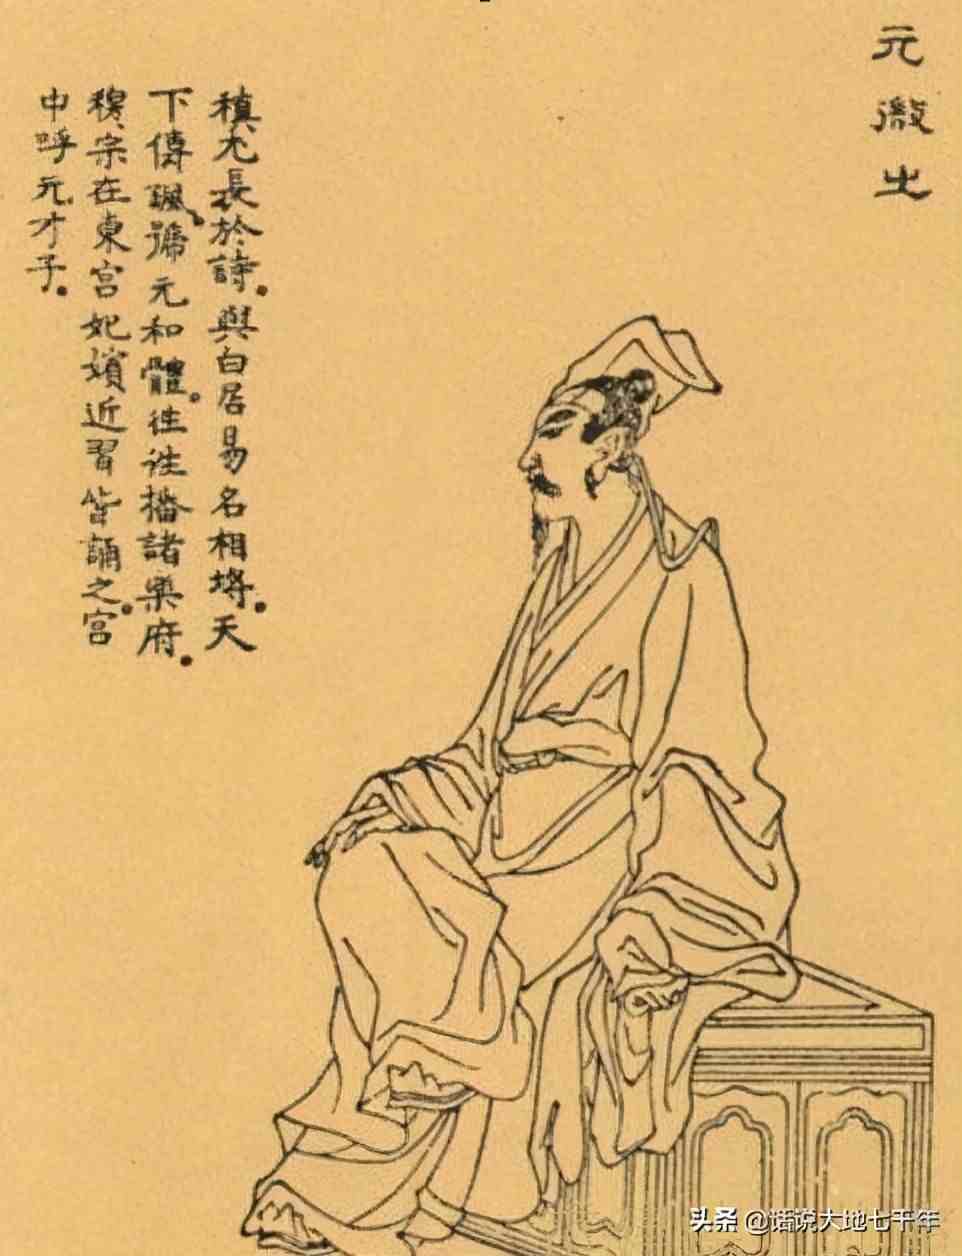 元微之
稹尤長於詩。與白居易名相埒。天
下傳諷、號元和體。往往播諸樂府。
穆宗在東宮妃嬪近習皆誦之。宮
中呼元才子。
头条 @话说大地七千年